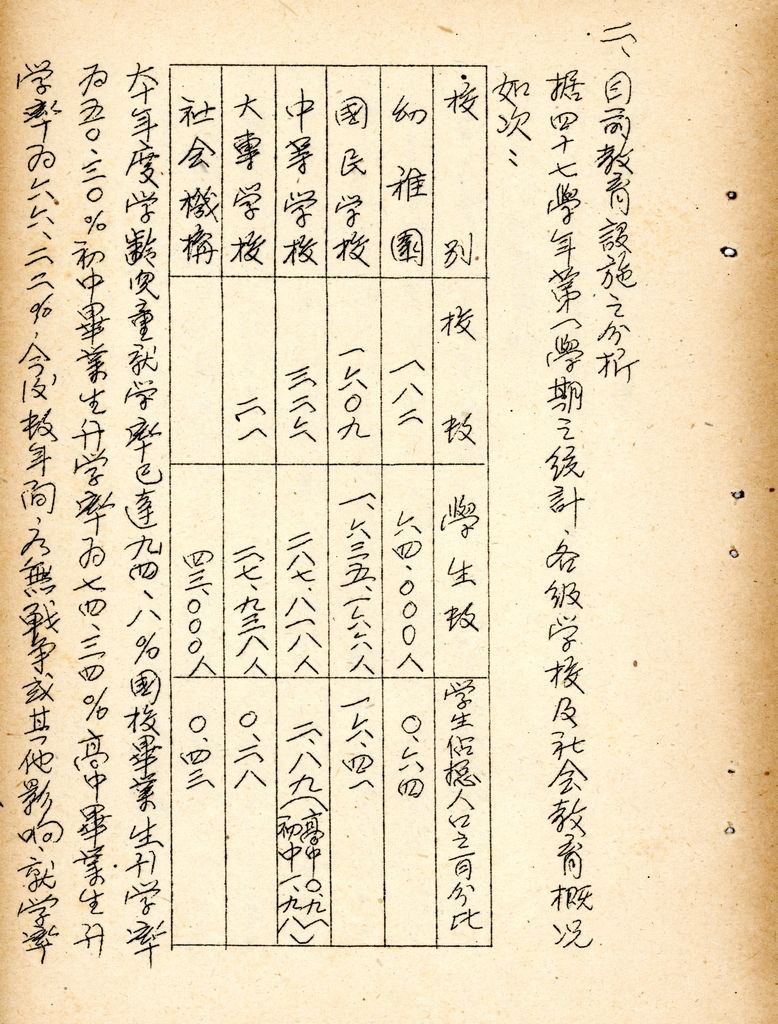 二、目前教育設施之分析
据四十七學年第一學期之統計、各級学校及社会教育概况
如次：
校別 校数 學生数 学生佔總人口之百分比
幼稚園 一八二 六四、〇〇〇人 〇.六四
國民学校 一六〇九 一、六三五、一六六人 一六.四一
中等学校 三二六 二八七、八一八人 二.八九(高中〇.九一 初中一.九八)
大專学校 二一 二七、九三八人 〇.二八
社会機構 四三、〇〇〇人 〇.四三
本年度学齡兒童就学率已達九四.八%國校畢業生升学率
为五〇.三〇%初中畢業生升学率为七四.三四%高中畢業生升
学率为六六.二二%,今後数年間,若無戰争或其他影响,就学率